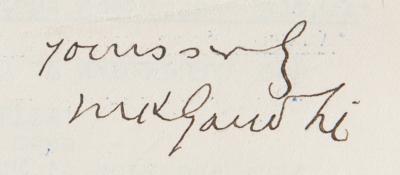 yours srly
MKGandhi